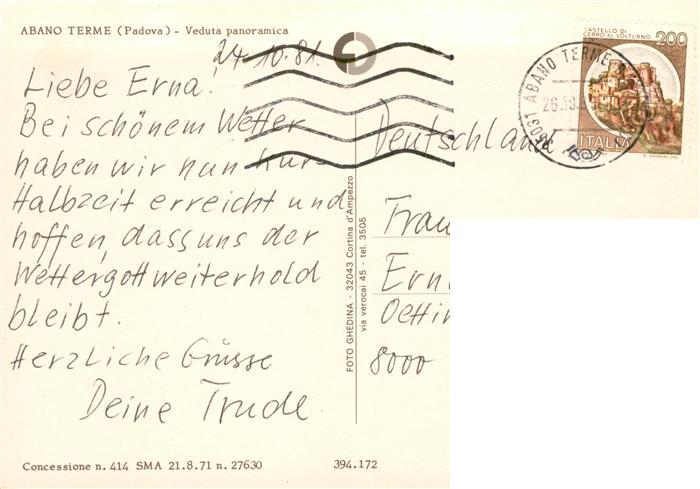 ABANO TERME (Padova) - Veduta panoramica
24.10.81.
Liebe Erna!
Bei schönem Wetter
haben wir nun Kur-
Halbzeit erreicht und
hoffen, dass uns der
Wettergott weiterhold
bleibt.
Herzliche Grüsse
Deine Trude
Concessione n. 414 SMA 21.8.71 n. 27630
394.172
FOTO GHEDINA - 32043 Cortina d'Ampezzo
via verocai 45 - tel. 3505
CASTELLO DI
CERRO AL VOLTURNO
200
ITALIA
35031 ABANO TERME
26.10.
Deutschland
Frau
Ern
Oettin
8000